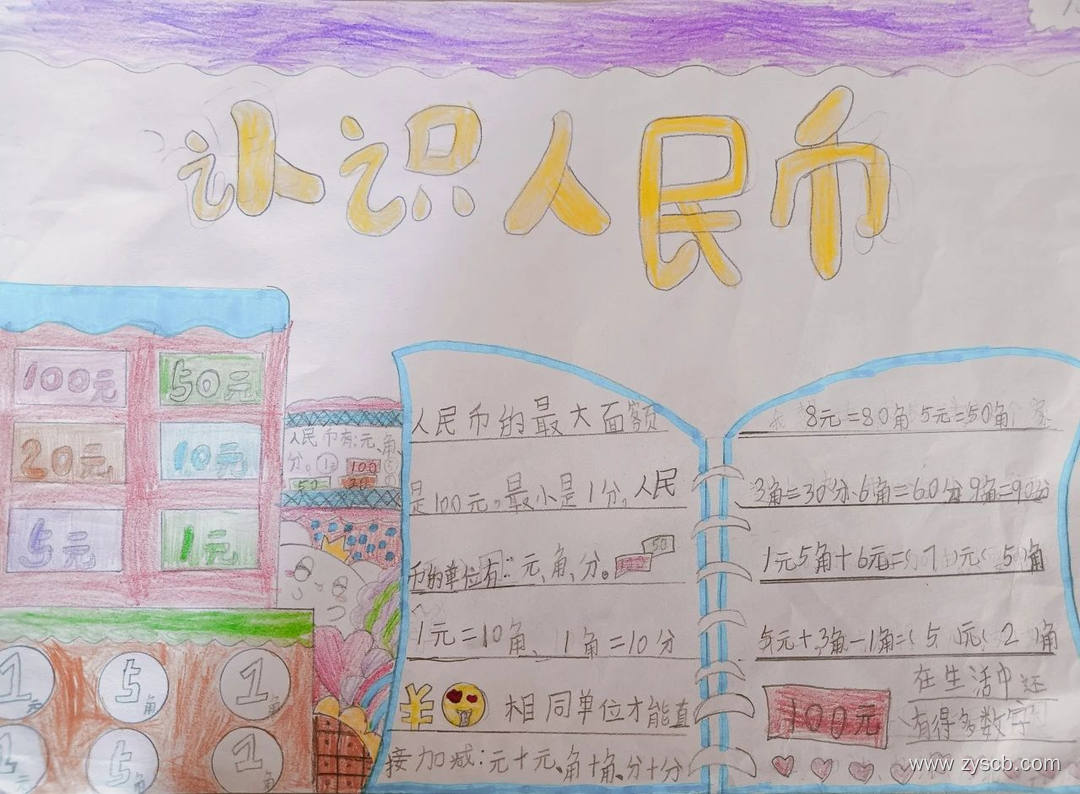 认识人民币
100元 50元
20元 10元
5元 1元
人民币有:元、角、
分。 100
50 20
1元 5角 1角
5角 1角
人民币的最大面额
是100元,最小是1分,人民
币的单位有:元、角、分。 100 50
1元=10角、1角=10分
¥ 相同单位才能直
接加减:元+元、角+角、分+分
8元=80角 5元=50角
3角=30分 6角=60分 9角=90分
1元5角+6元=(7)元(5)角
5元+3角-1角=(5)元(2)角
100元
在生活中还
有得多数字
www.zyscb.com